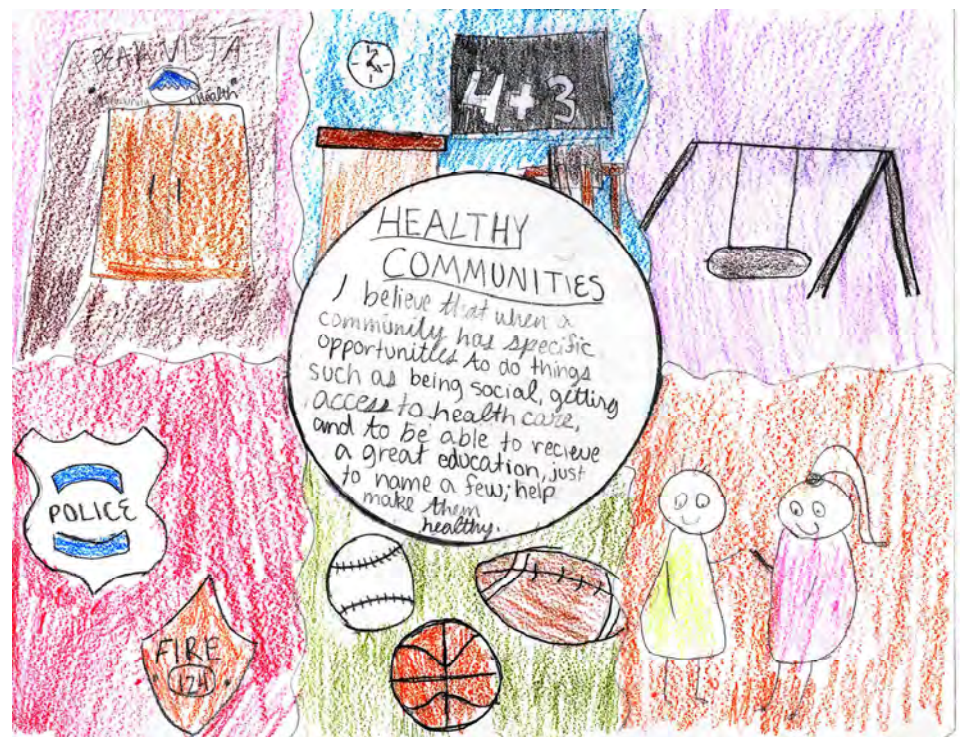 PEAK VISTA
Community Health
4+3
HEALTHY
COMMUNITIES
I believe that when a
community has specific
opportunities to do things
such as being social, getting
access to health care,
and to be able to recieve
a great education, just
to name a few; help
make them
healthy.
POLICE
FIRE
124